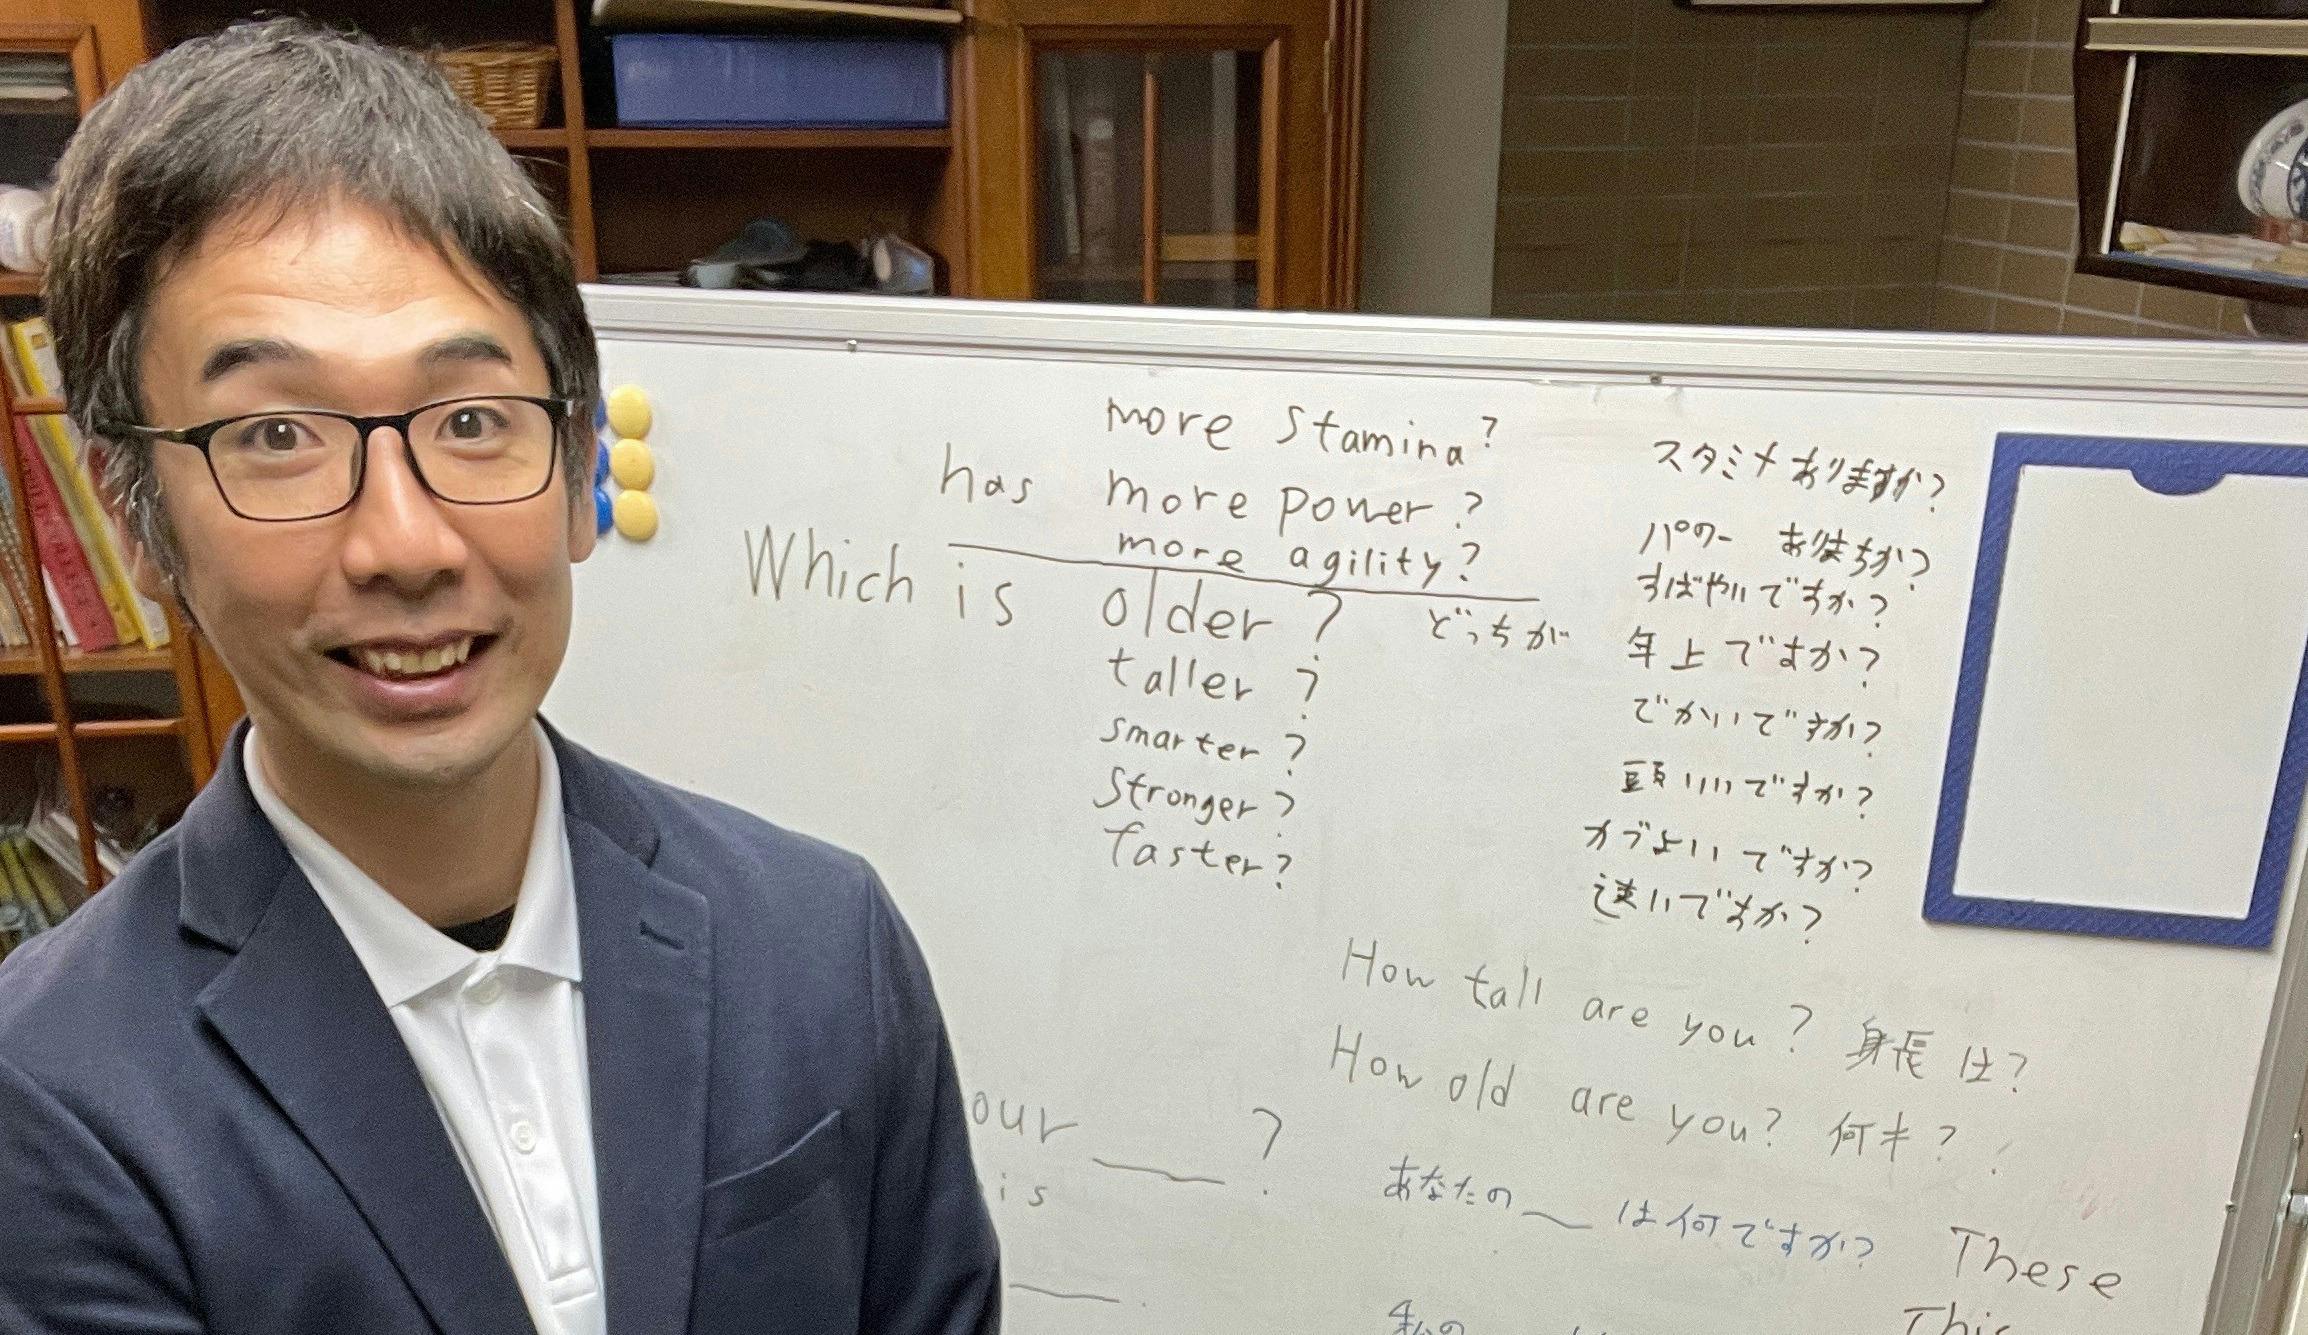 more stamina? スタミナありますか?
has more power? パワー ありますか?
more agility? すばやいですか?
Which is older? どっちが 年上ですか?
taller? でかいですか?
smarter? 頭いいですか?
stronger? カづよいですか?
faster? 速いですか?
How tall are you? 身長は?
How old are you? 何才?
our ___? あなたの___は何ですか?
is
These
私の
This